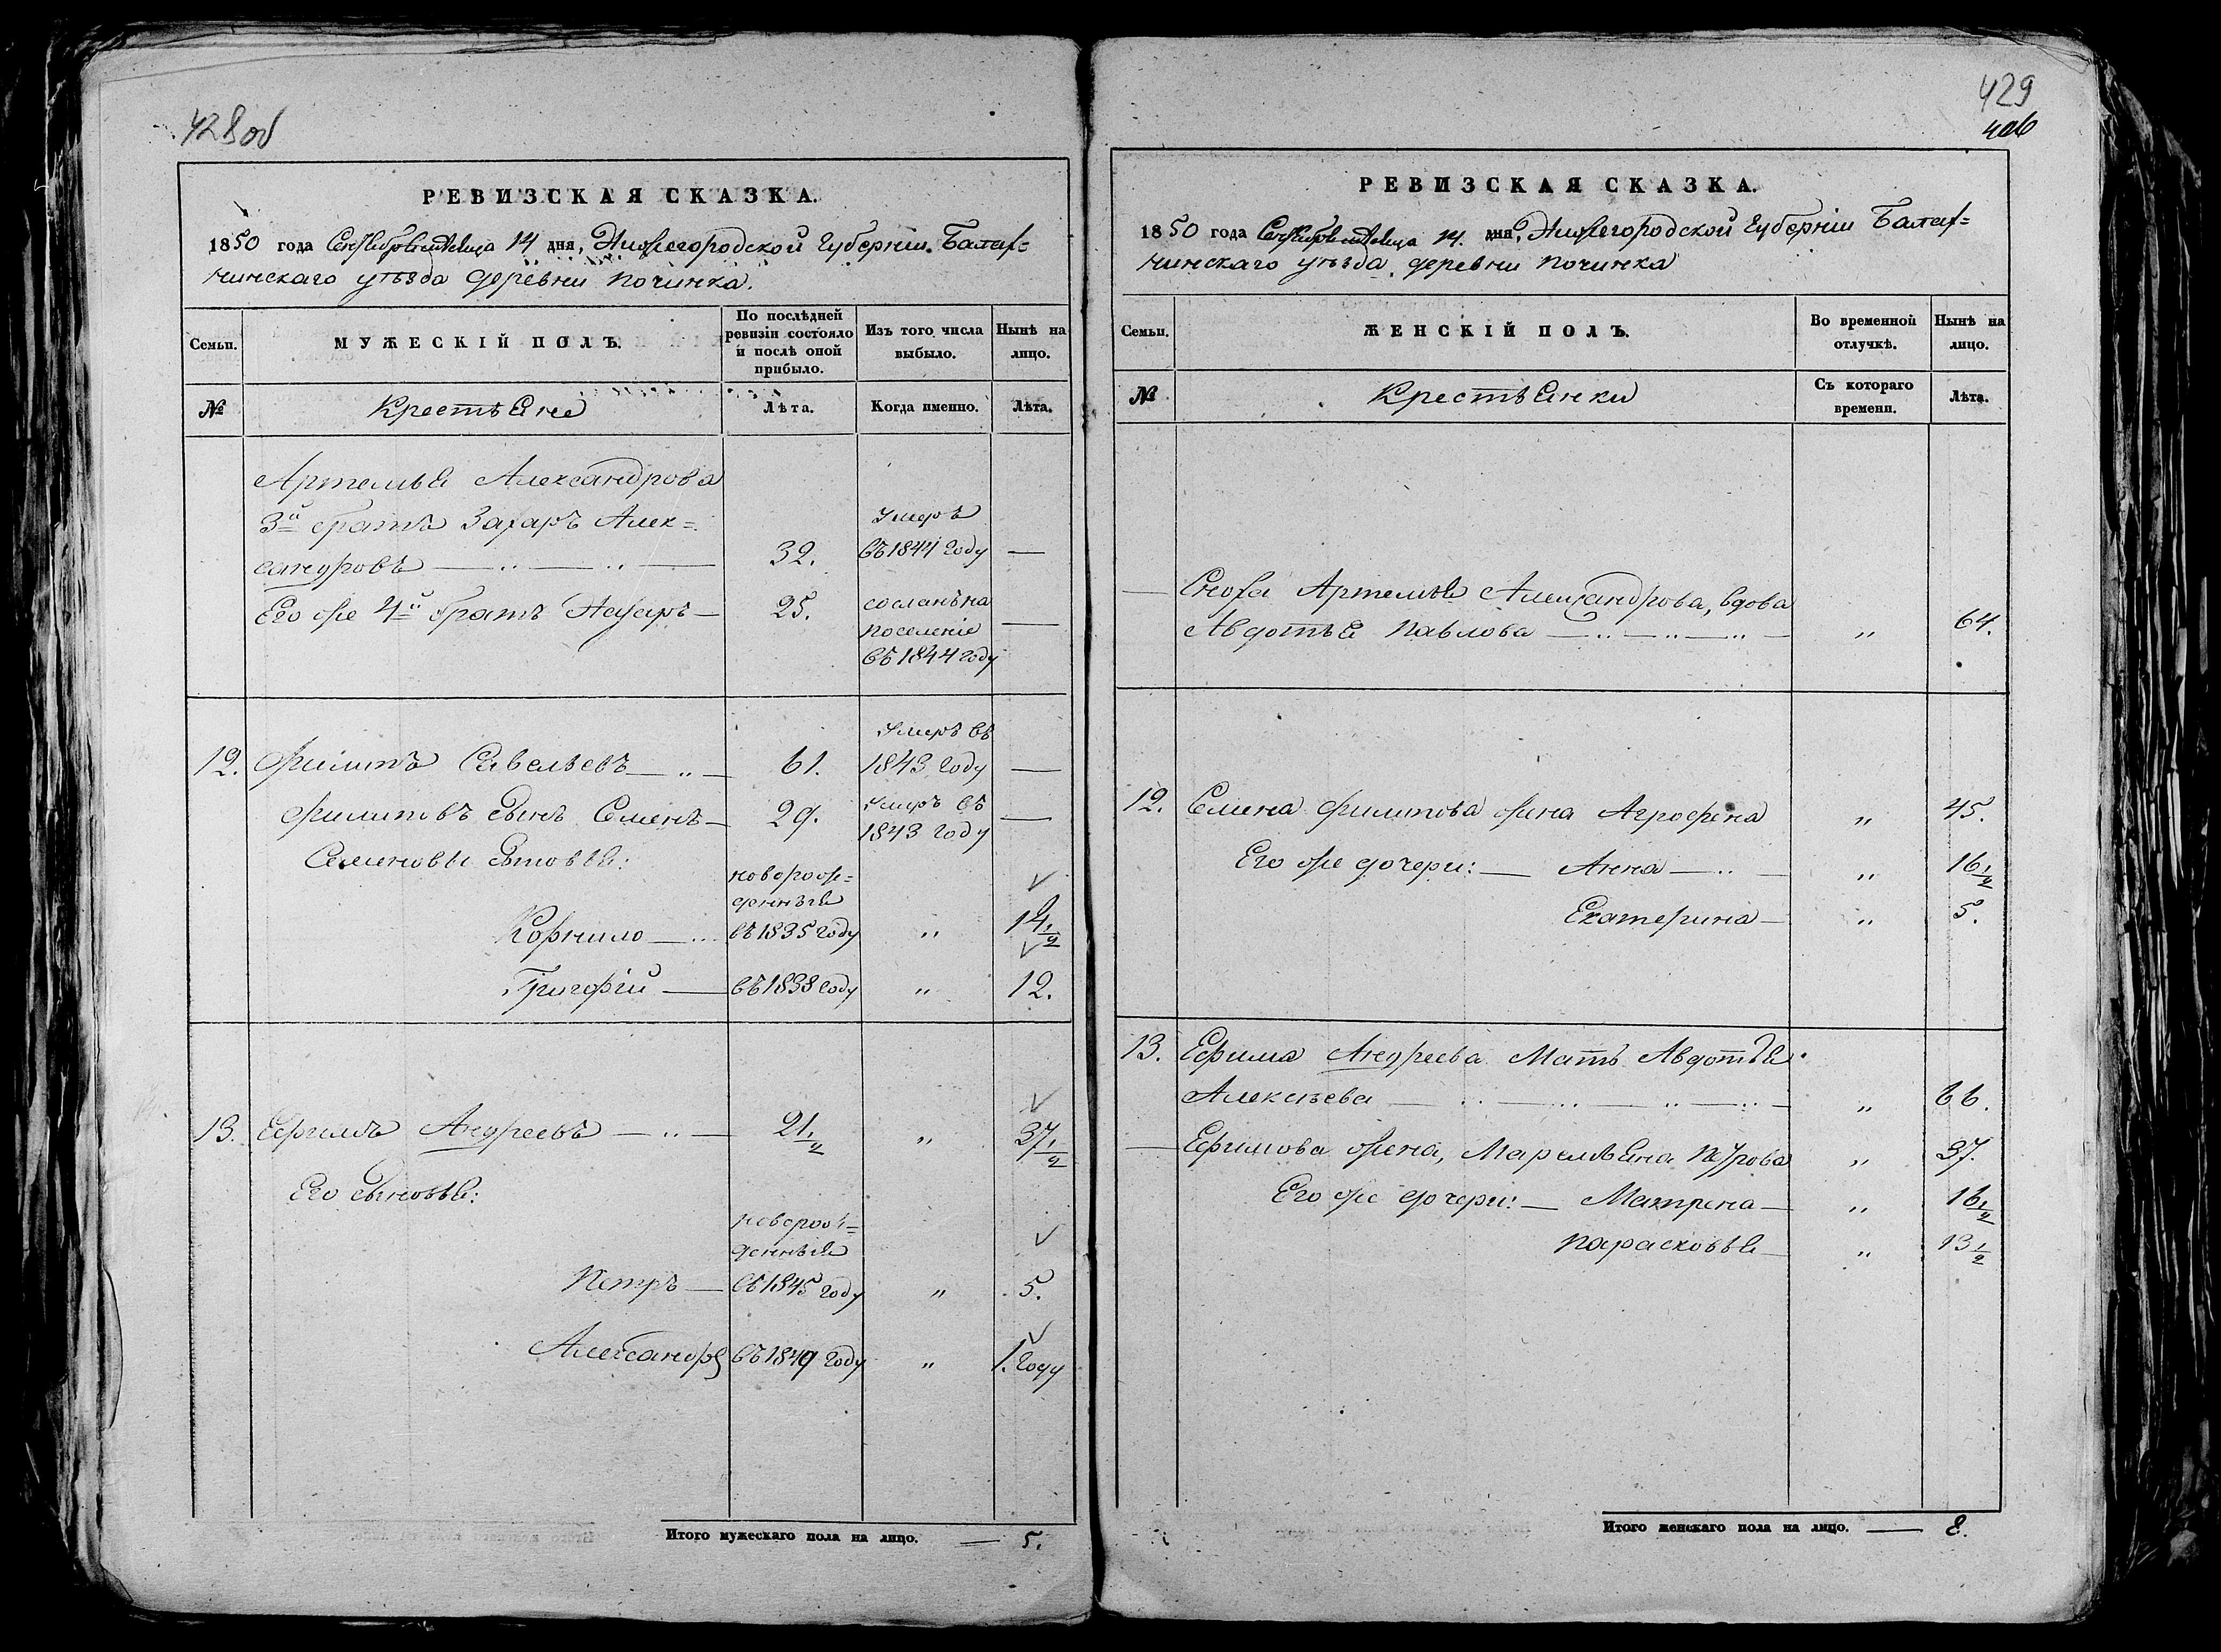 428 об
РЕВИЗСКАЯ СКАЗКА.
1850 года Сентября месяца 14 дня, Нижегородской Губерніи Балах=
нинскаго уѣзда деревни Починка.
Семьи.
МУЖЕСКІЙ ПОЛЪ.
По послѣдней ревизіи состояло и послѣ оной прибыло.
Изъ того числа выбыло.
Нынѣ на лицо.
№
Крестьяне
Лѣта.
Когда именно.
Лѣта.
Артемья Александрова
3й братъ Захаръ Алек=
сандровъ — 32. Умеръ въ 1844 году —
Его же 4й братъ Назаръ — 25. сосланъ на поселеніе въ 1844 году —
12. Филипъ Савельевъ — „ — 61. Умеръ въ 1843 году —
Филиповъ сынъ Семенъ — 29. Умеръ въ 1843 году —
Семеновы сыновья:
новорож=
денные
Корнило — въ 1835 году „ 14 1/2
Григорій — въ 1838 году „ 12.
13. Ефимъ Андреевъ — „ — 21 1/2 „ 37 1/2
Его сыновья:
новорож=
денные
Петръ — въ 1845 году „ 5.
Александръ въ 1849 году „ 1. году
Итого мужескаго пола на лицо. — 5.
429
406
РЕВИЗСКАЯ СКАЗКА.
1850 года Сентября месяца 14. дня, Нижегородской Губерніи Балах=
нинскаго уѣзда, деревни Починка
Семьи.
ЖЕНСКІЙ ПОЛЪ.
Во временной отлучкѣ.
Нынѣ на лицо.
№
Крестьянки
Съ котораго времени.
Лѣта.
— Сноха Артемья Александрова, вдова
Авдотья Павлова — „ 64.
12. Семена Филипова жена Агрофена „ 45.
Его же дочери: — Анна — „ 16 1/2
Екатерина — „ 5.
13. Ефима Андреева Мать Авдотья
Алексѣева — „ 66.
— Ефимова жена, Маремьяна Петрова „ 37.
Его же дочери: — Матрена — „ 16 1/2
Парасковья — „ 13 1/2
Итого женскаго пола на лицо. — 8.